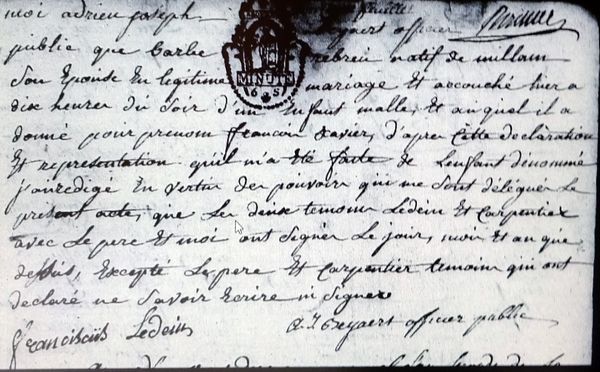 moi adrien joseph officier
public que Barbe natif de millam
Son Epouse En legitime mariage Et accouché hier a
dix heures du Soir d'un Enfant malle, Et auquel il a
donné pour prenom francois Xavier, d'apres Cette declaration
Et representation qu'il m'a Eté faite de L'enfant dénommé
j'ai redigé En vertu des pouvoirs qui me Sont délégues Le
present acte, que Les deux temoins Ledein Et Carpentier
avec Le pere Et moi ont Signer Le jour, mois Et an que
dessus, Excepté Le pere Et Carpentier temoin qui ont
declaré ne Savoir Ecrire ni Signer
MINUTE
Franciscus Ledein officier public